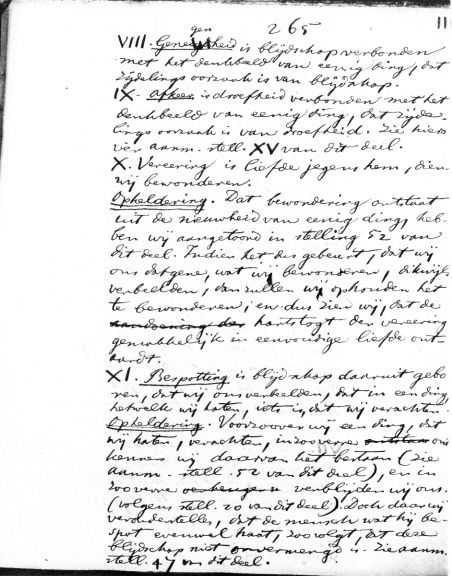 265
11
VIII. Genegenheid is blijdschap verbonden
met het denkbeeld van eenig ding, dat
zijdelings oorzaak is van blijdschap.
IX. Afkeer is droefheid verbonden met het
denkbeeld van eenig ding, dat zijde-
lings oorzaak is van droefheid. Zie hier-
over aanm. stell. XV van dit deel.
X. Vereering is liefde jegens hem, dien
wij bewonderen.
Opheldering. Dat bewondering ontstaat
uit de nieuwheid van eenig ding, heb-
ben wij aangetoond in stelling 52 van
dit deel. Indien het dus gebeurt, dat wij
ons datgene, wat wij bewonderen, dikwijls
verbeelden, dan zullen wij ophouden het
te bewonderen; en dus zien wij, dat de
aandoening der hartstogt der vereering
gemakkelijk in eenvoudige liefde ont-
aardt.
XI. Bespotting is blijdschap daaruit gebo-
ren, dat wij ons verbeelden, dat in een ding,
hetwelk wij haten, iets is, dat wij verachten.
Opheldering. Voorzoover wij een ding, dat
wij haten, verachten, in zooverre ont
kennen wij daarvan het bestaan (zie
aanm. stell. 52 van dit deel), en in
zooverre verblijden wij ons.
(volgens stell. 20 van dit deel). Doch daar wij
veronderstellen, dat de mensch wat hij be-
spot evenwel haat, zoo volgt, dat deze
blijdschap niet onvermengd is. Zie aanm.
stell. 47 van dit deel.